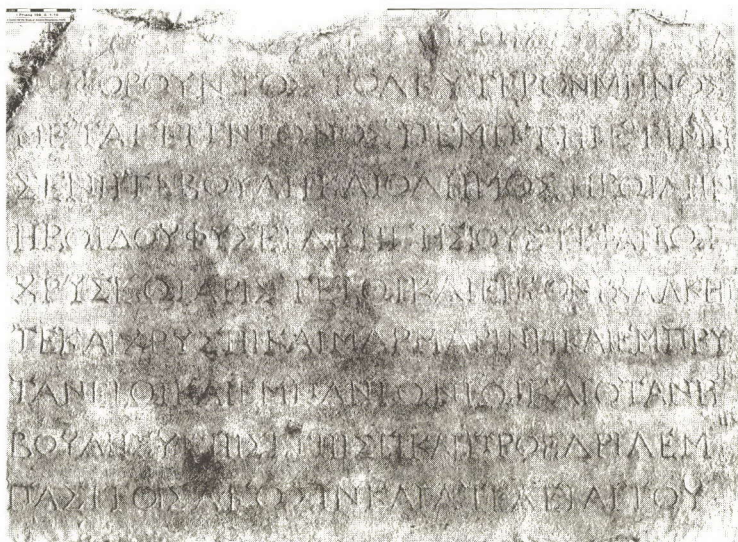 ΦΟΡΟΥΝΤΟΣ ΤΟΔΕΥΤΕΡΟΝΜΗΝΟΣ
ΜΕΤΑΓΕΙΤΝΙΩΝΟΣ ΠΕΜΠΤΗΙΕΤΙΜΗ
ΣΕΝΗΤΕΒΟΥΛΗΚΑΙΟΔΗΜΟΣΗΡΩΙΔΗΝ
ΗΡΩΙΔΟΥΦΥΣΕΙΔΕΗΓΗΣΙΟΥΣΤΕΦΑΝΩΙ
ΧΡΥΣΕΩΙΑΡΙΣΤΕΙΩΙΚΑΙΕΙΚΟΝΙΧΑΛΚΗΙ
ΤΕΚΑΙΧΡΥΣΗΙΚΑΙΜΑΡΜΑΡΙΝΗΙΚΑΙΕΜΠΡΥ
ΤΑΝΕΙΩΙΚΑΙΕΜΠΑΝΙΩΝΙΩΙΚΑΙΟΤΑΝΗ
ΒΟΥΛΗΣΥΝΗΙΣΙΤΗΣΕΙΚΑΙΠΡΟΕΔΡΙΑΙΕΜ
ΠΑΣΙΤΟΙΣΑΓΩΣΙΝΚΑΙΑΤΕΛΕΙΑΙΤΟΥ